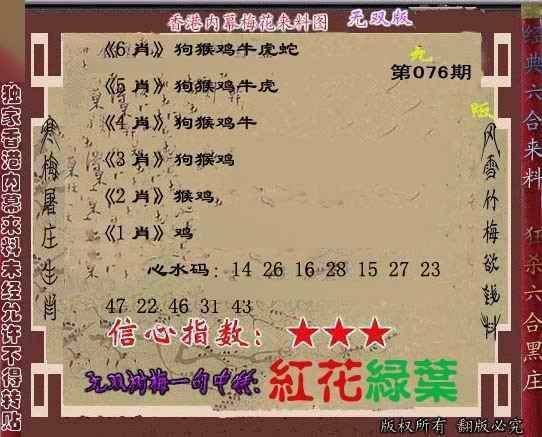 香港内幕梅花来料图 无双版
《6 肖》狗猴鸡牛虎蛇
九
第076期
《5 肖》狗猴鸡牛虎
版
《4 肖》狗猴鸡牛
《3 肖》狗猴鸡
《2 肖》猴鸡
《1 肖》鸡
心水码: 14 26 16 28 15 27 23
47 22 46 31 43
信心指数: ★★★
一句中特:紅花緑葉
版权所有 翻版必究
独家香港内幕来料未经允许不得转贴
寒梅屠庄生肖
风雪竹梅欲钱料
经典六合来料 狂杀六合黑庄